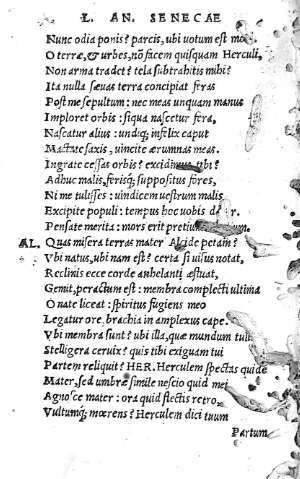 L. AN. SENECAE
Nunc odia ponis? parcis, ubi uotum est mori.
O terræ, & urbes, nõ facem quisquam Herculi,
Non arma tradet? tela subtrahitis mihi?
Ita nulla sæuas terra concipiat feras
Post me sepultum: nec meas unquam manus
Imploret orbis: siqua nascetur fera,
Nascatur alius: undiq; infelix caput
Mactate saxis, uincite ærumnas meas.
Ingrate cessas orbis? excidimus tibi?
Adhuc malis, ferisq; suppositus fores,
Ni me tulisses: uindicem uestrum malis
Excipite populi: tempus hoc uobis datur
Pensate merita: mors erit pretium
AL. Quas misera terras mater Alcidæ petam?
Vbi natus, ubi nam est? certa si uisus notat,
Reclinis ecce corde anhelanti æstuat,
Gemit, peractum est: membra complecti ultima
O nate liceat: spiritus fugiens meo
Legatur ore. brachia in amplexus cape.
Vbi membra sunt? ubi illa, quæ mundum tulit
Stelligera ceruix? quis tibi exiguam tui
Partem reliquit? HER. Herculem spectas quidē
Mater, sed umbræ simile nescio quid mei
Agnosce mater: ora quid flectis retro,
Vultumq; mœrens? Herculem dici tuum
Partum